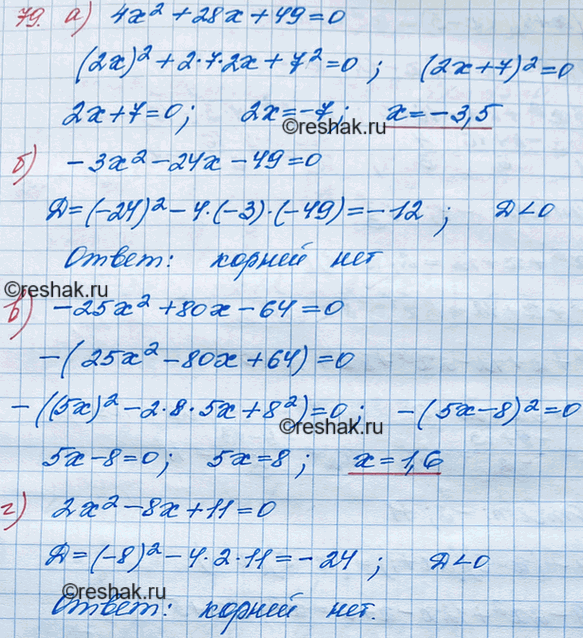 79. а) 4x² + 28x + 49 = 0
(2x)² + 2·7·2x + 7² = 0 ; (2x+7)² = 0
2x + 7 = 0 ; 2x = -7 ; x = -3,5
©reshak.ru
б) -3x² - 24x - 49 = 0
Д = (-24)² - 4·(-3)·(-49) = -12 ; Д < 0
Ответ: корней нет
©reshak.ru
в) -25x² + 80x - 64 = 0
-(25x² - 80x + 64) = 0
-((5x)² - 2·8·5x + 8²) = 0 ; -(5x-8)² = 0
©reshak.ru
5x - 8 = 0 ; 5x = 8 ; x = 1,6
г) 2x² - 8x + 11 = 0
Д = (-8)² - 4·2·11 = -24 ; Д < 0
©reshak.ru
Ответ: корней нет.